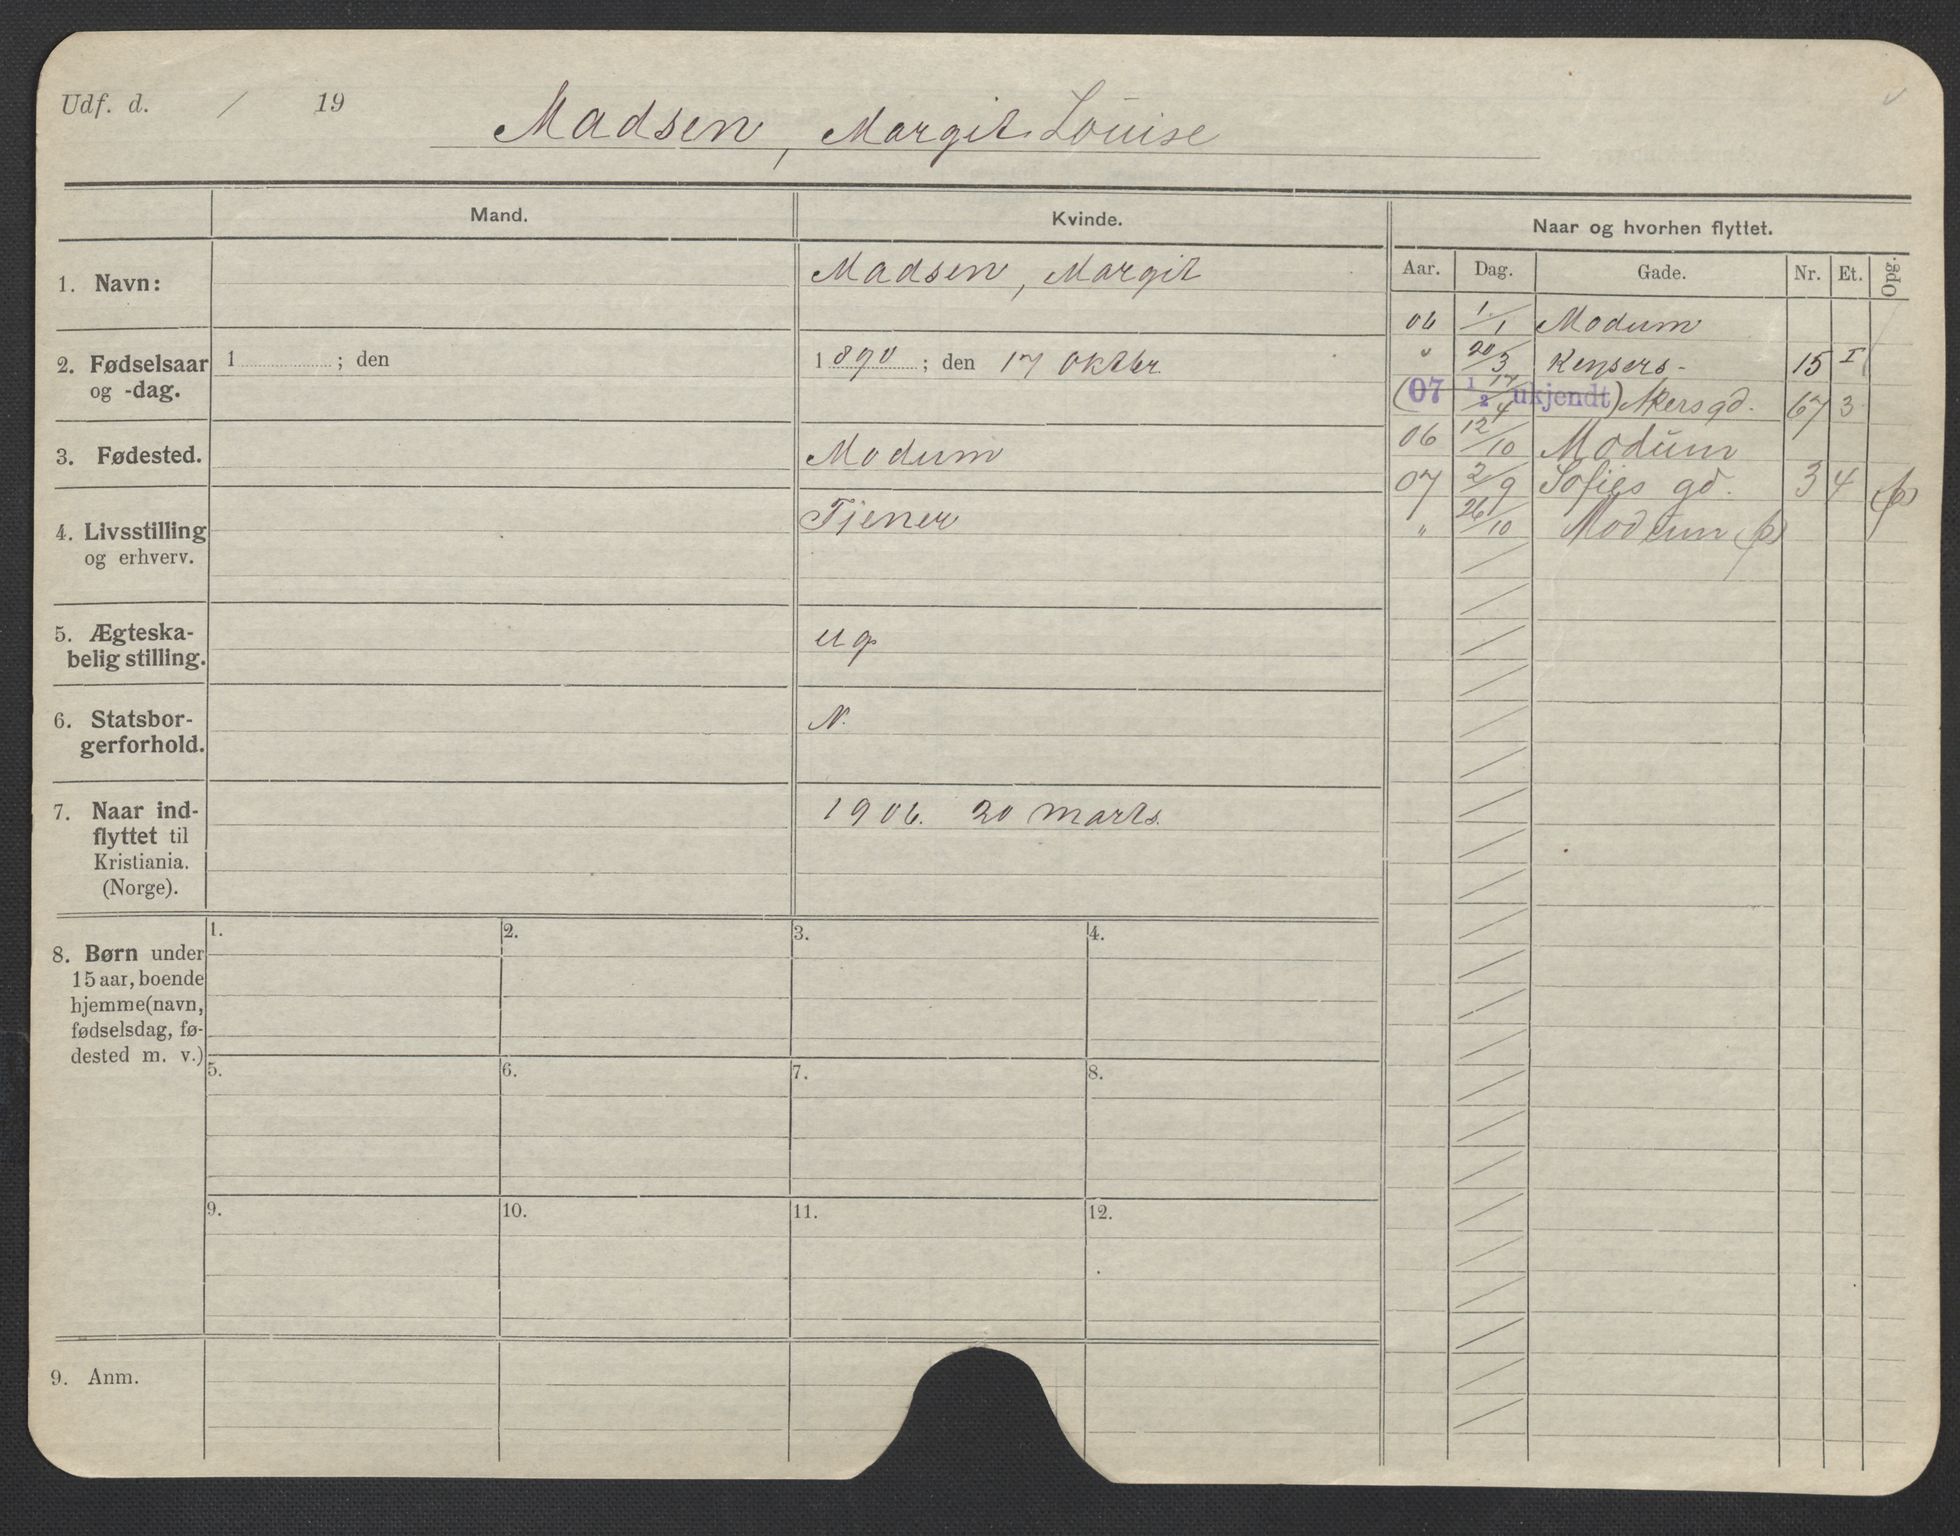 Udf. d. / 19
Madsen, Margit Louise
Mand. Kvinde. Naar og hvorhen flyttet.
Aar. Dag. Gade. Nr. Et. Opg.
1. Navn: Madsen, Margit
2. Fødselsaar og -dag. 1 ; den 1890 ; den 17 Oktbr
3. Fødested. Modum
4. Livsstilling og erhverv. Tjener
5. Ægteska-
belig stilling. ug
6. Statsbor-
gerforhold. N.
7. Naar ind-
flyttet til
Kristiania.
(Norge). 1906. 20 marts.
06 1/1 Modum
" 20/3 Keysers - 15 I
(07 1/2 ukjendt) 17/4 Akersgd. 67 3
06 12/10 Modum
07 2/9 Sofies gd. 3 4
" 26/10 Modum
8. Børn under
15 aar, boende
hjemme (navn,
fødselsdag, fø-
dested m. v.)
1. 2. 3. 4.
5. 6. 7. 8.
9. 10. 11. 12.
9. Anm.